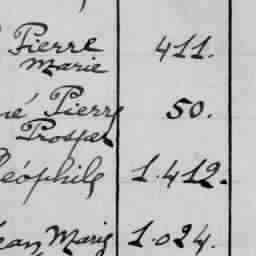 Pierre 411.
Marie
né Pierre 50.
Prosper
éophile 1.412.
ean Marie 1.024.